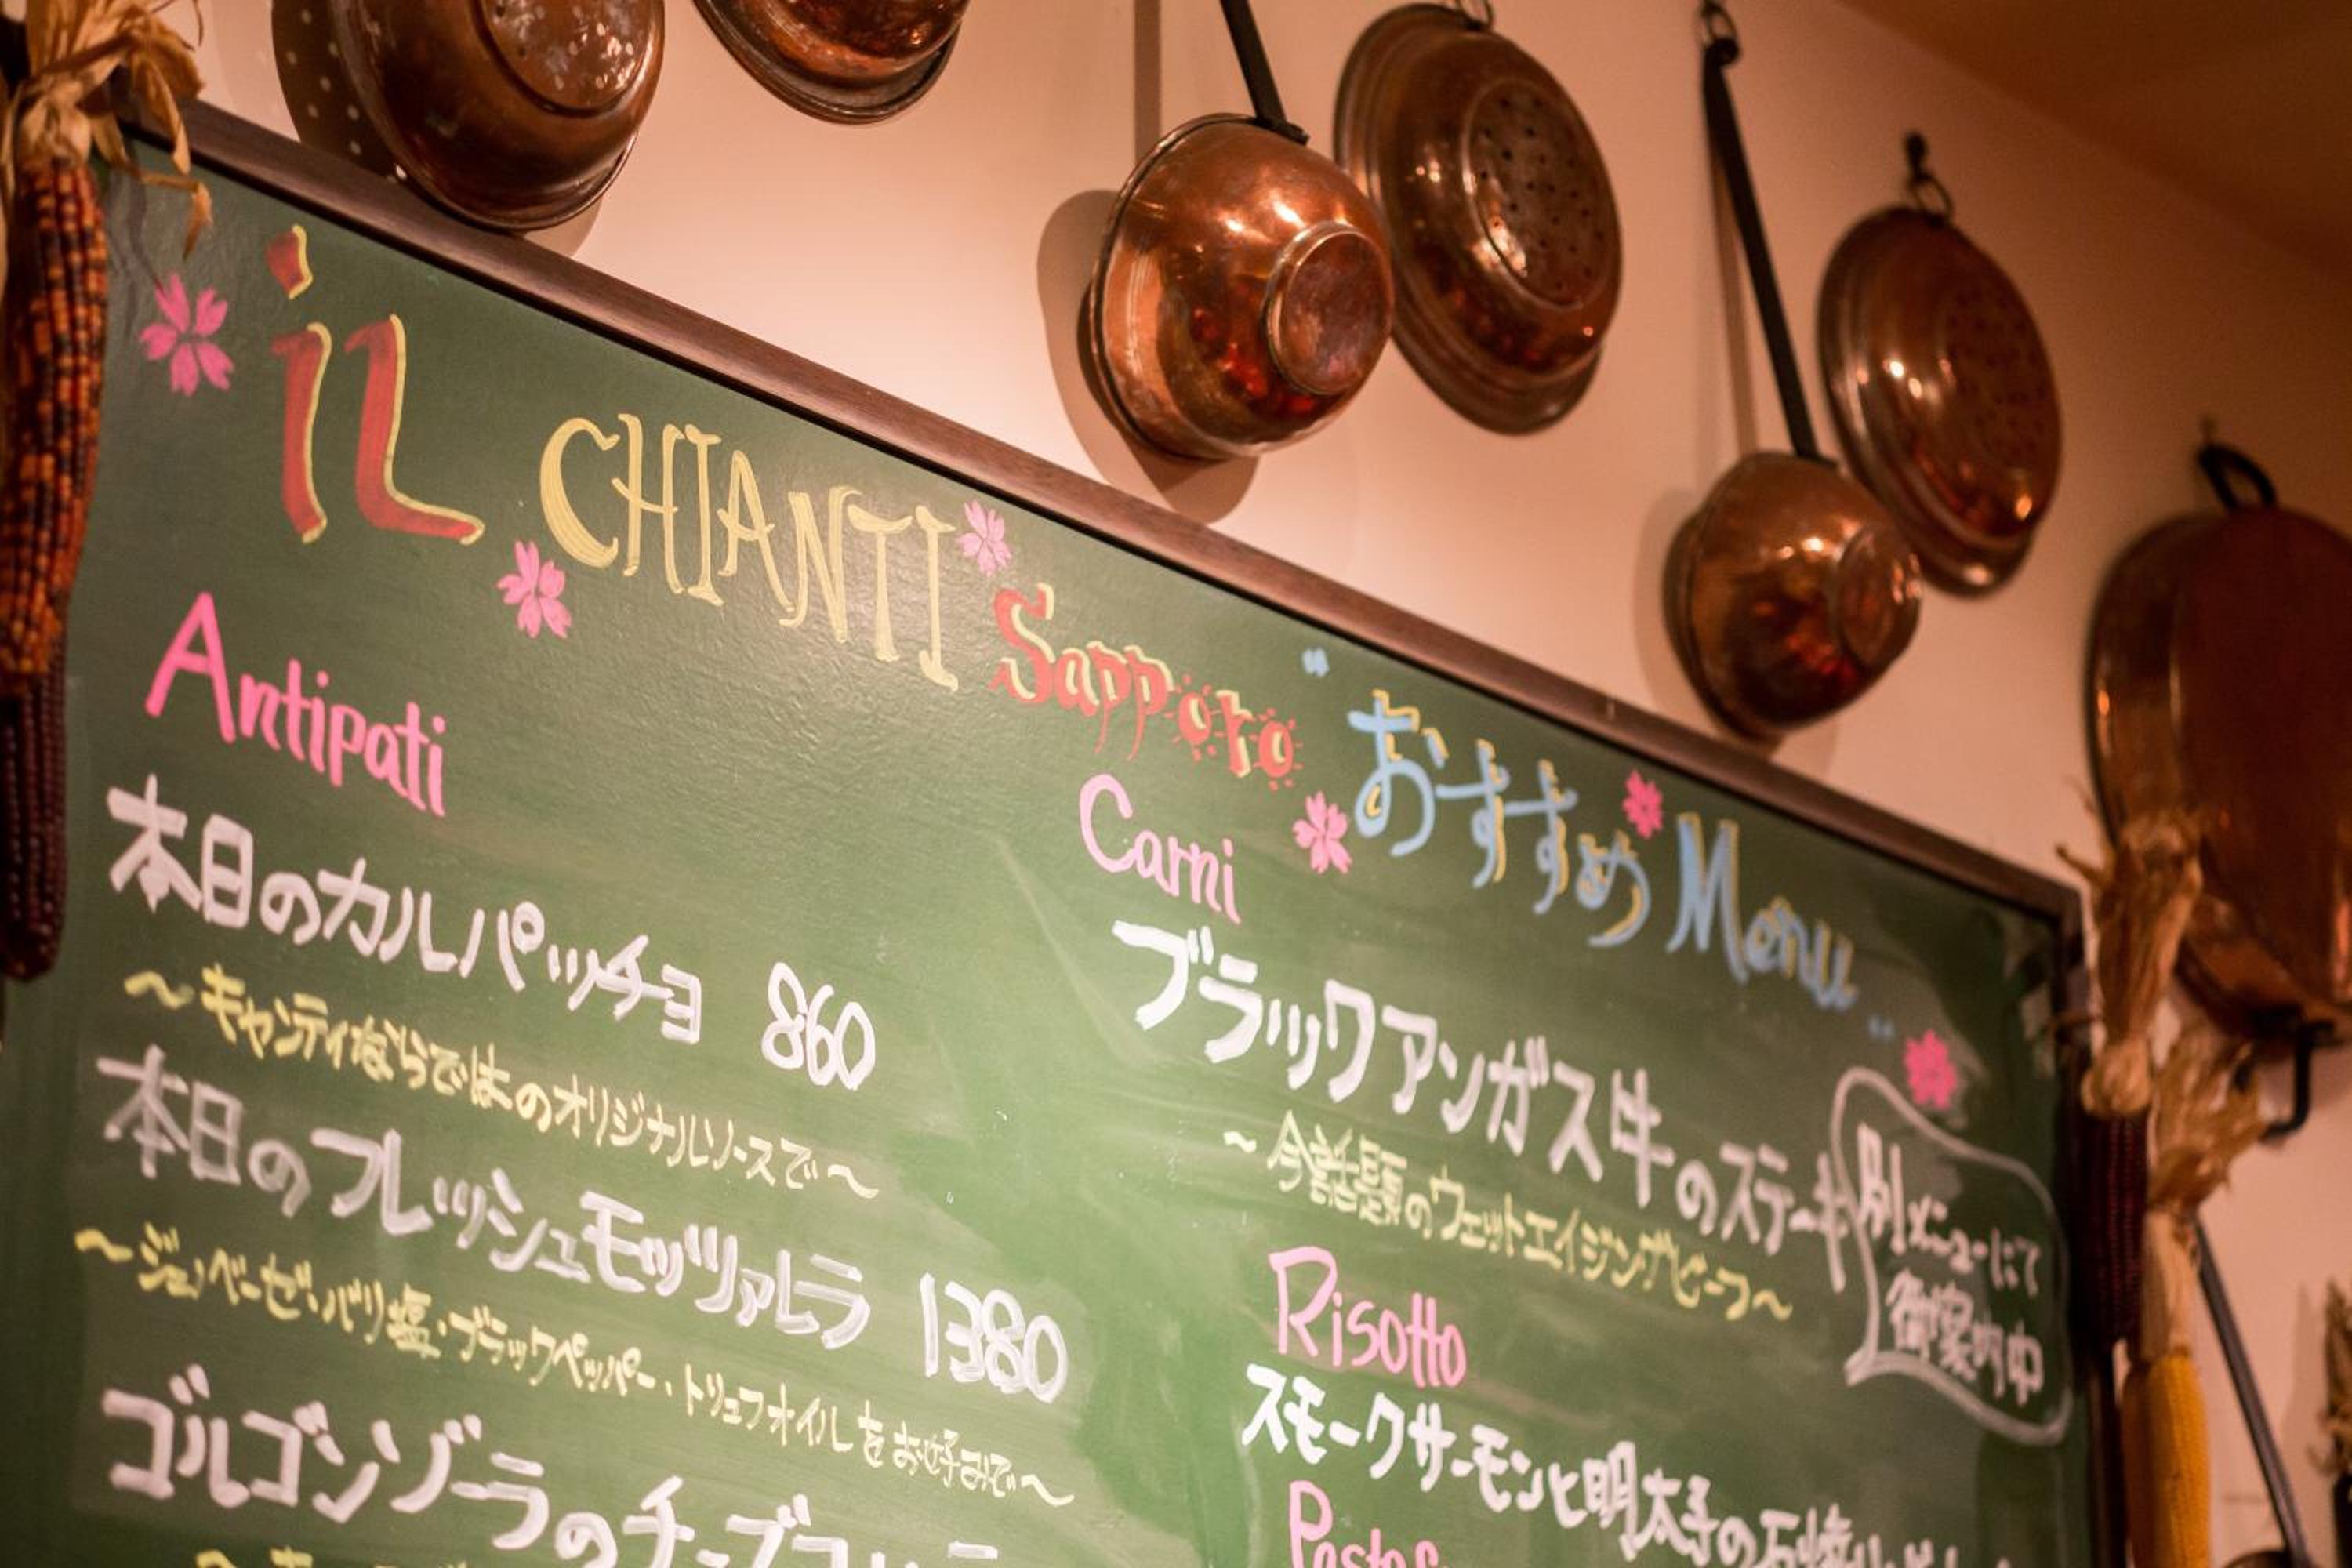 iL CHIANTI Sapporo "おすすめ Menu"
Antipati
本日のカルパッチョ 860
~キャンティならではのオリジナルソースで~
本日のフレッシュモッツァレラ 1380
~ジェノベーゼ・バリ塩・ブラックペッパー・トリュフオイルをお好みで~
ゴルゴンゾーラのチーズ
Carni
ブラックアンガス牛のステーキ
~今話題のウェットエイジングビーフ~
別メニューにて
御案内中
Risotto
スモークサーモンと明太子の石焼
Pasta